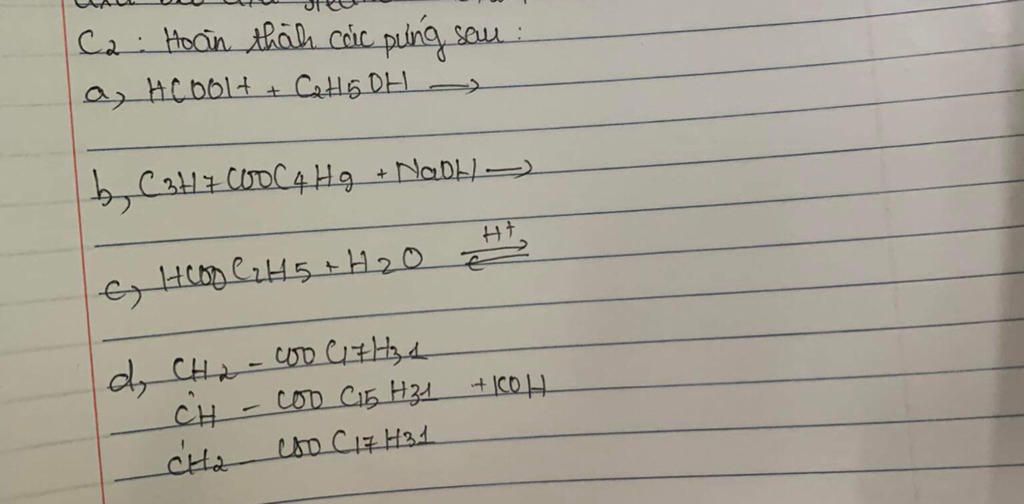 C2 : Hoàn thành các pứng sau :
a, HCOOH + C2H5OH →
b, C3H7COOC4H9 + NaOH →
c, HCOOC2H5 + H2O ⇌ H+
d, CH2 - COO C17H31
CH - COO C15H31 + KOH
CH2 - COO C17H31